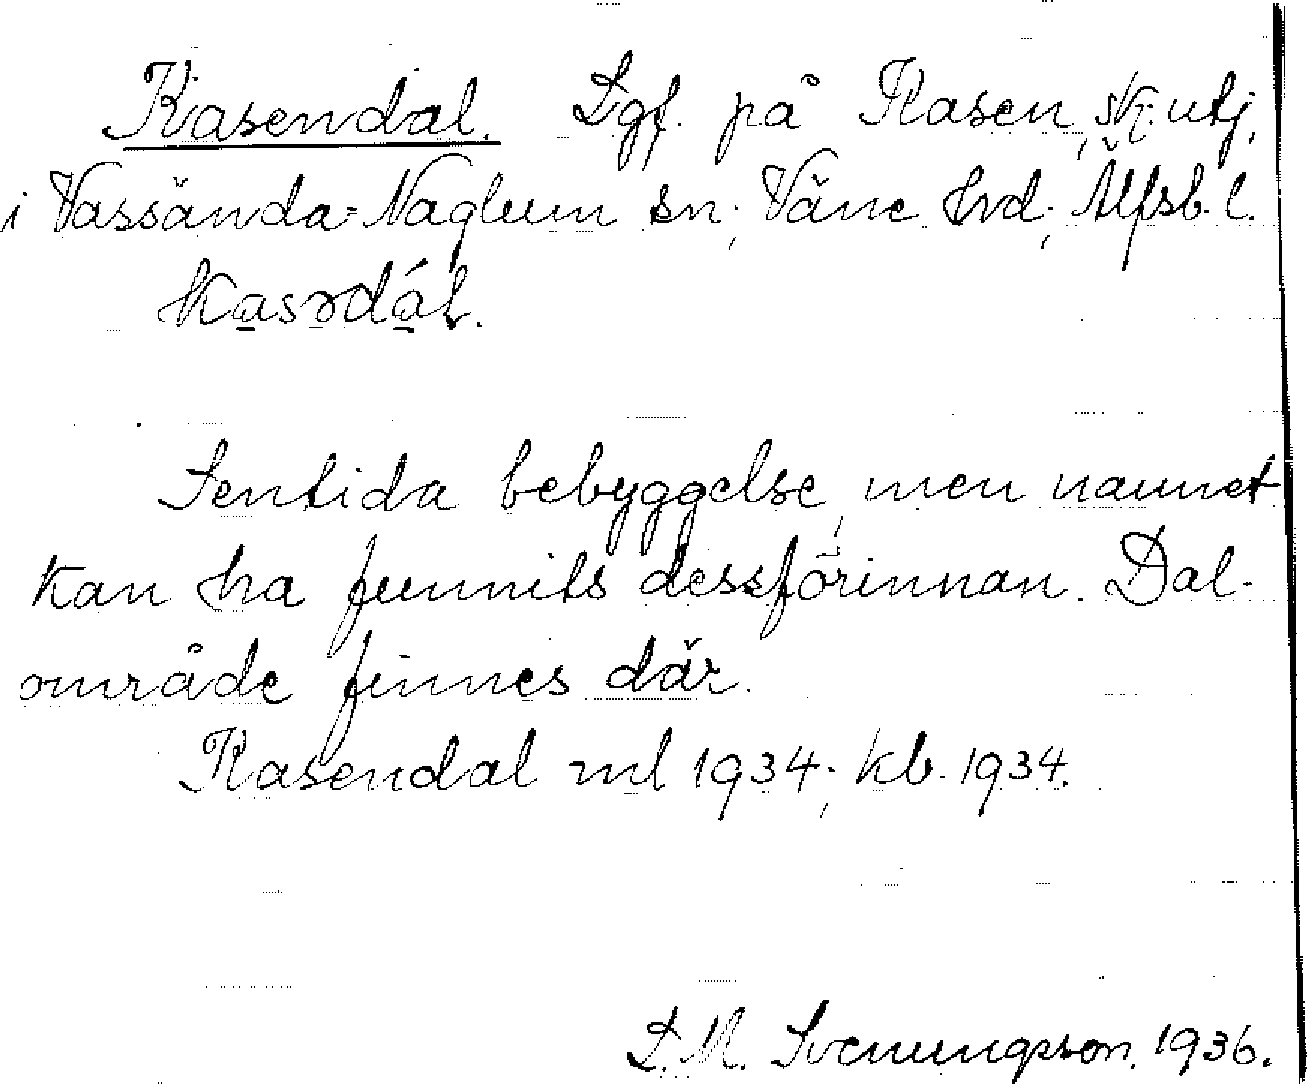 Kasendal. Lgf. på Kasen, N. utj.
i Vassända-Naglum sn; Väne hrd; Älfsb. l.
kasədál.
Sentida bebyggelse, men namnet
kan ha funnits dessförinnan. Dal-
område finnes där.
Kasendal ml 1934; kb. 1934.
L. M. Svenungsson. 1936.